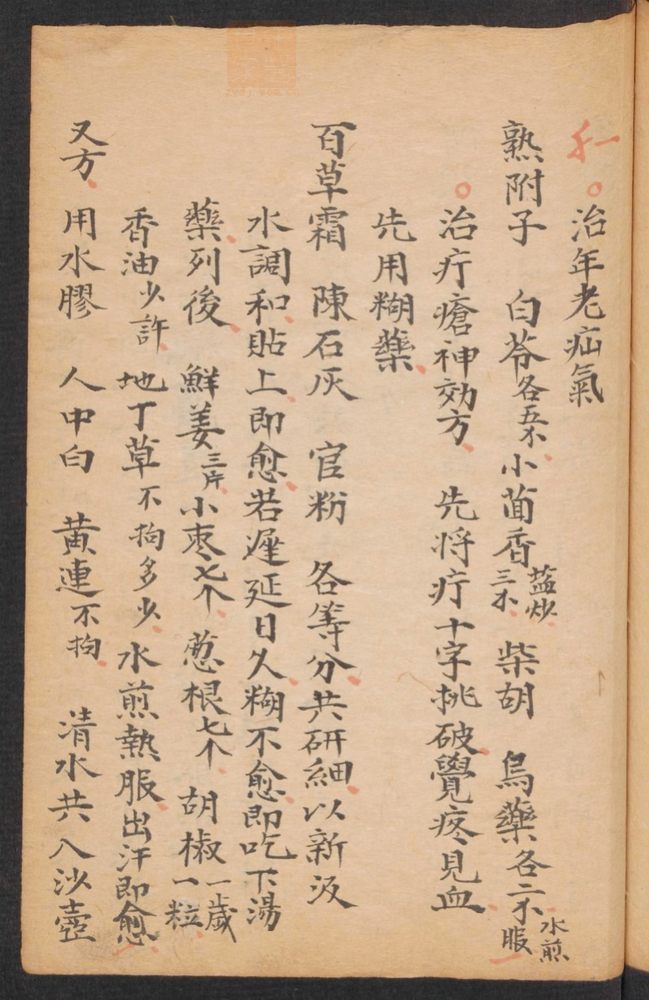 治年老疝氣
熟附子 白苓各五小茴香盐炒三 柴胡 烏藥各二 水煎服
治疔瘡神効方 先将疔十字挑破覺疼見血
先用糊藥
百草霜 陳石灰 官粉 各等分共研細以新汲
水調和貼上即愈若遲延日久糊不愈即吃下湯
藥列後 鮮姜三片小枣七个 葱根七个 胡椒一歲一粒
香油少許 地丁草不拘多少水煎熱服出汗即愈
又方 用水膠 人中白 黄連不拘 清水共入沙壺